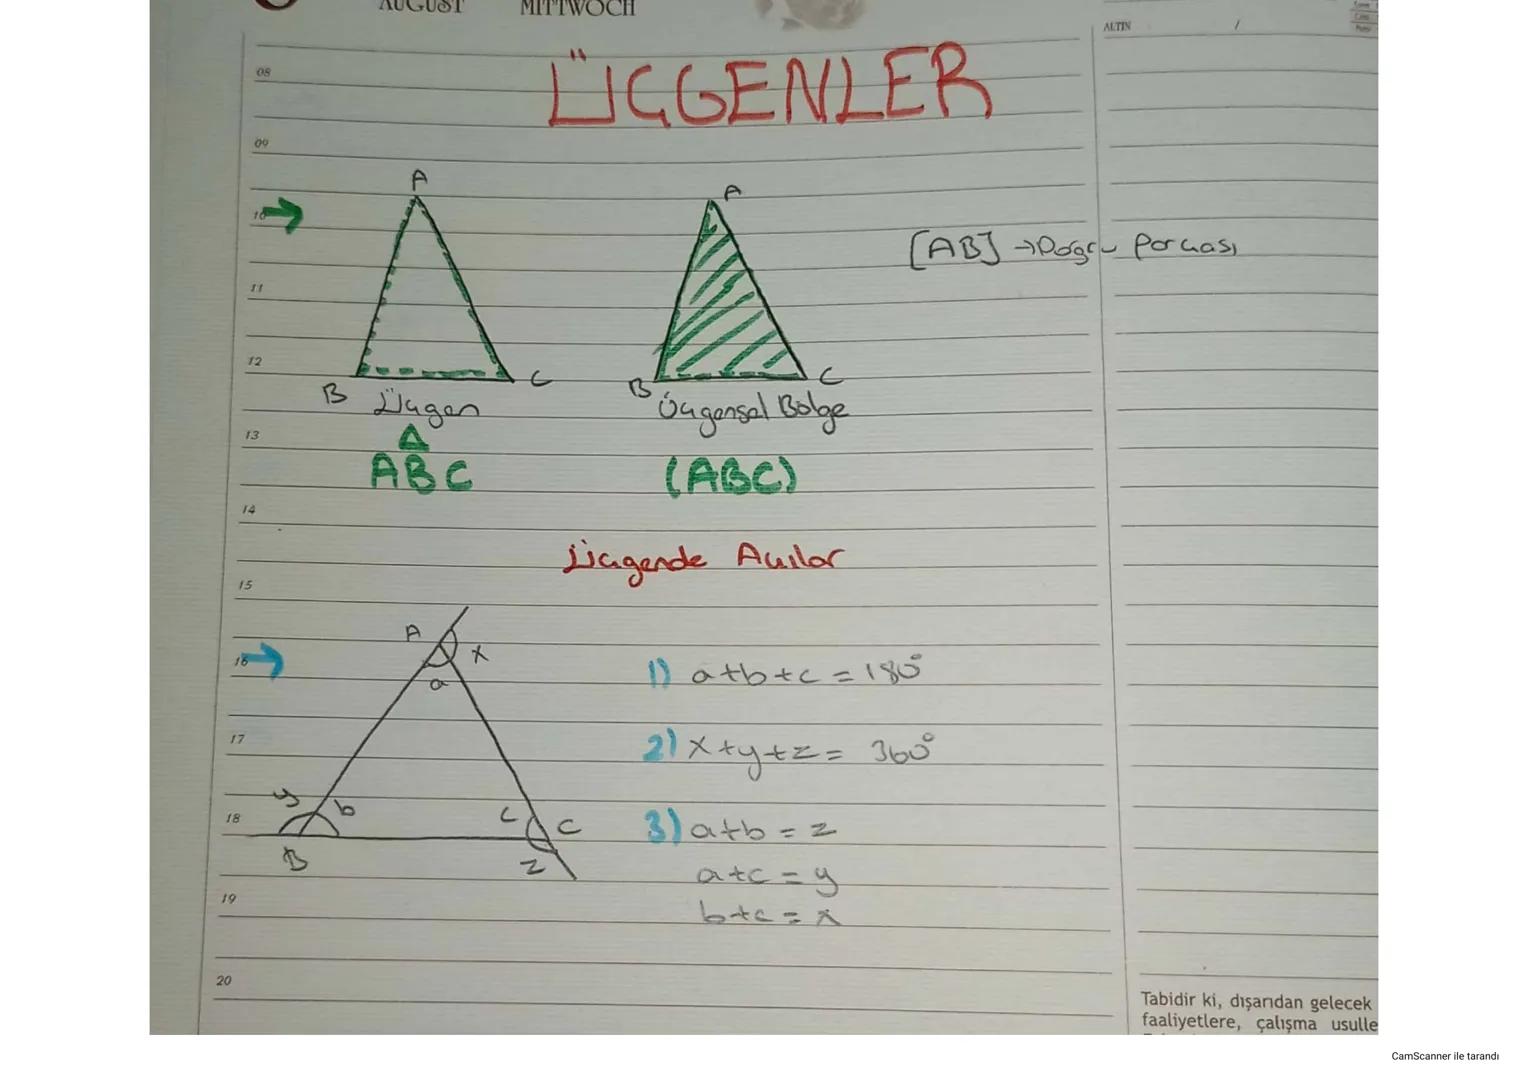 AUGUST MITTWOCH
ALTIN /
ÜÇGENLER
08
09
10
11
12
13
14
15
16
17
18
19
20
A
B
C
Üçgen
ABC
A
B
C
Üçgensel Bölge
(ABC)
[AB] → Doğru Parçası
Üçgende Açılar
A
x
a
y
b
B
c
C
z
1) a+b+c = 180°
2) x+y+z = 360°
3) a+b = z
a+c = y
b+c = x
Tabidir ki, dışarıdan gelecek
faaliyetlere, çalışma usulle
CamScanner ile tarandı